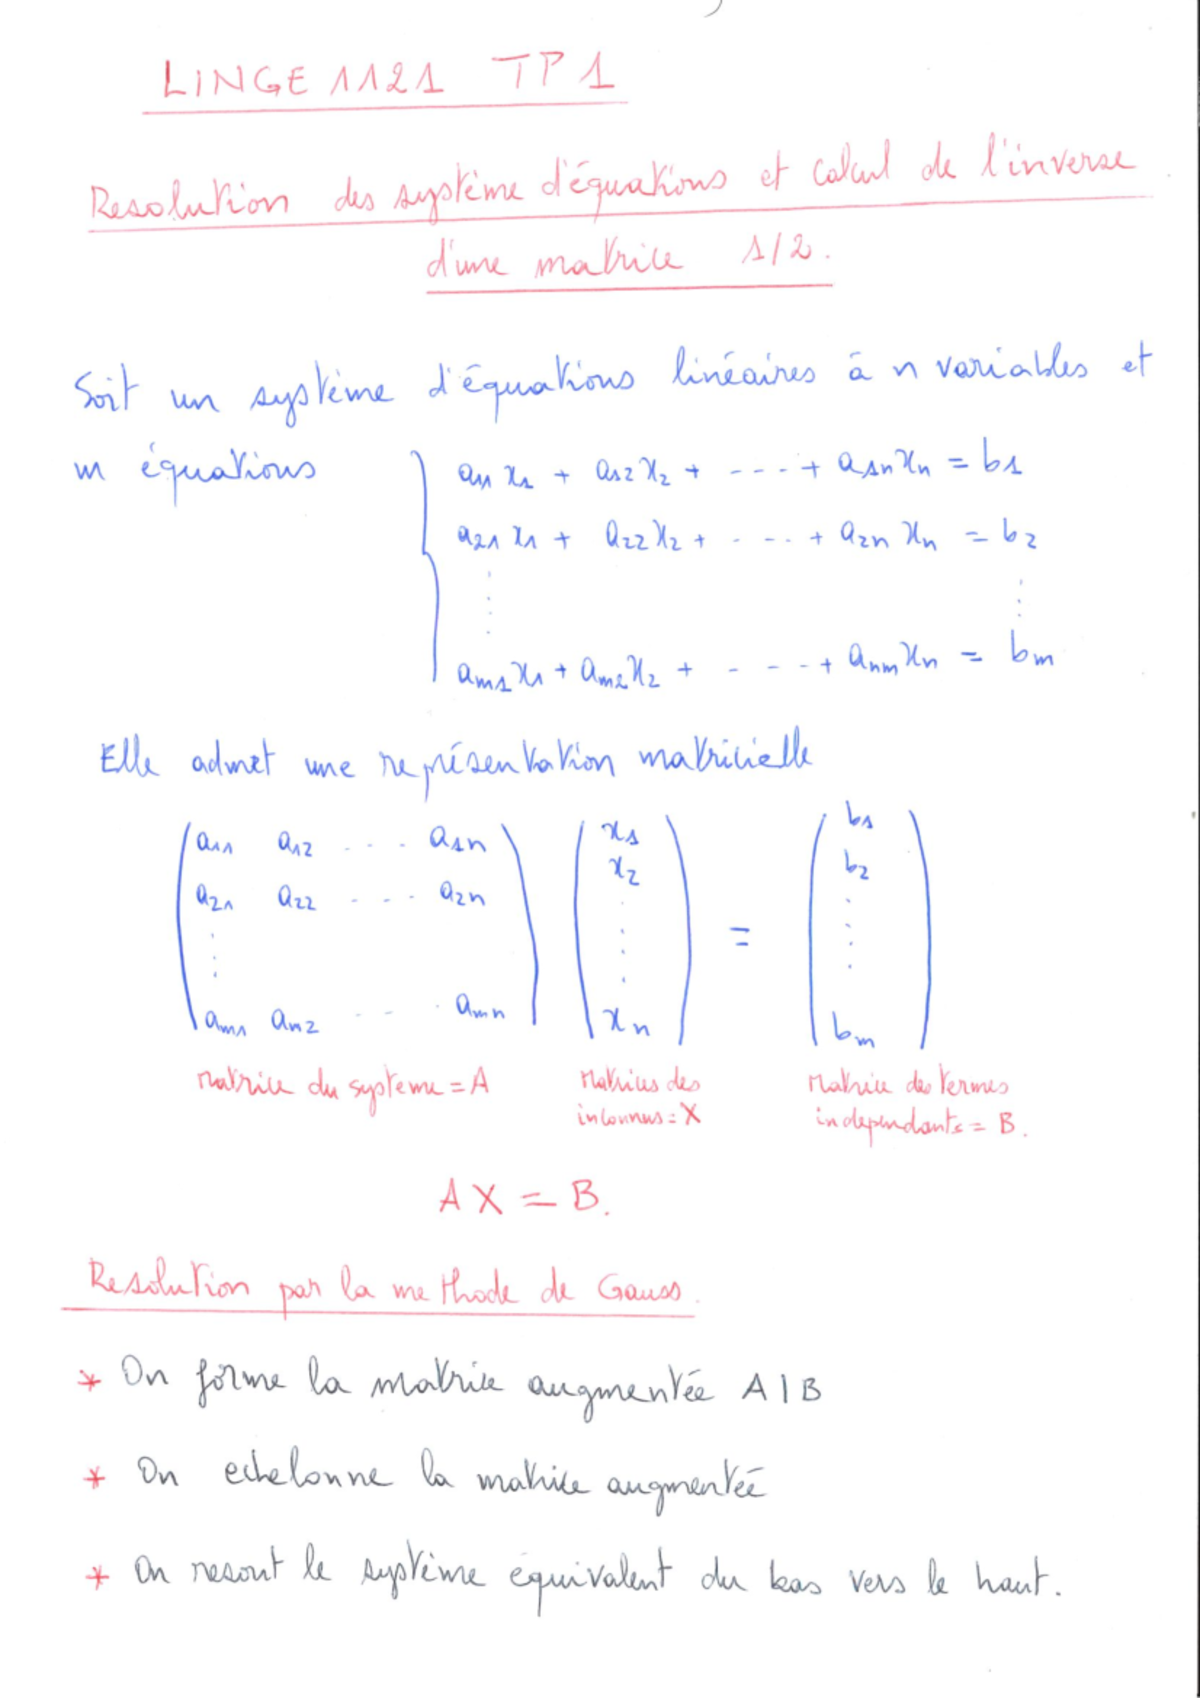 LINGE 1121 TP1
Resolution des système d'équations et calcul de l'inverse
d'une matrice 1/2.
Soit un système d'équations linéaires à n variables et
m équations
a11 x1 + a12 x2 + ---- + a1n xn = b1
a21 x1 + a22 x2 + - --- + a2n xn = b2
⋮ ⋮
am1 x1 + am2 x2 + - - - - + anm xn = bm
Elle admet une représentation matricielle
a11 a12 ... a1n x1 b1
a21 a22 ... a2n x2 = b2
⋮ ⋮ ⋮
am1 am2 ... amn xn bm
Matrice du systeme = A Matrices des Matrice des termes
inconnus = X independants = B.
AX = B.
Resolution par la methode de Gauss.
* On forme la matrice augmentée A | B
* On echelonne la matrice augmentée
* On resout le système équivalent du bas vers le haut.